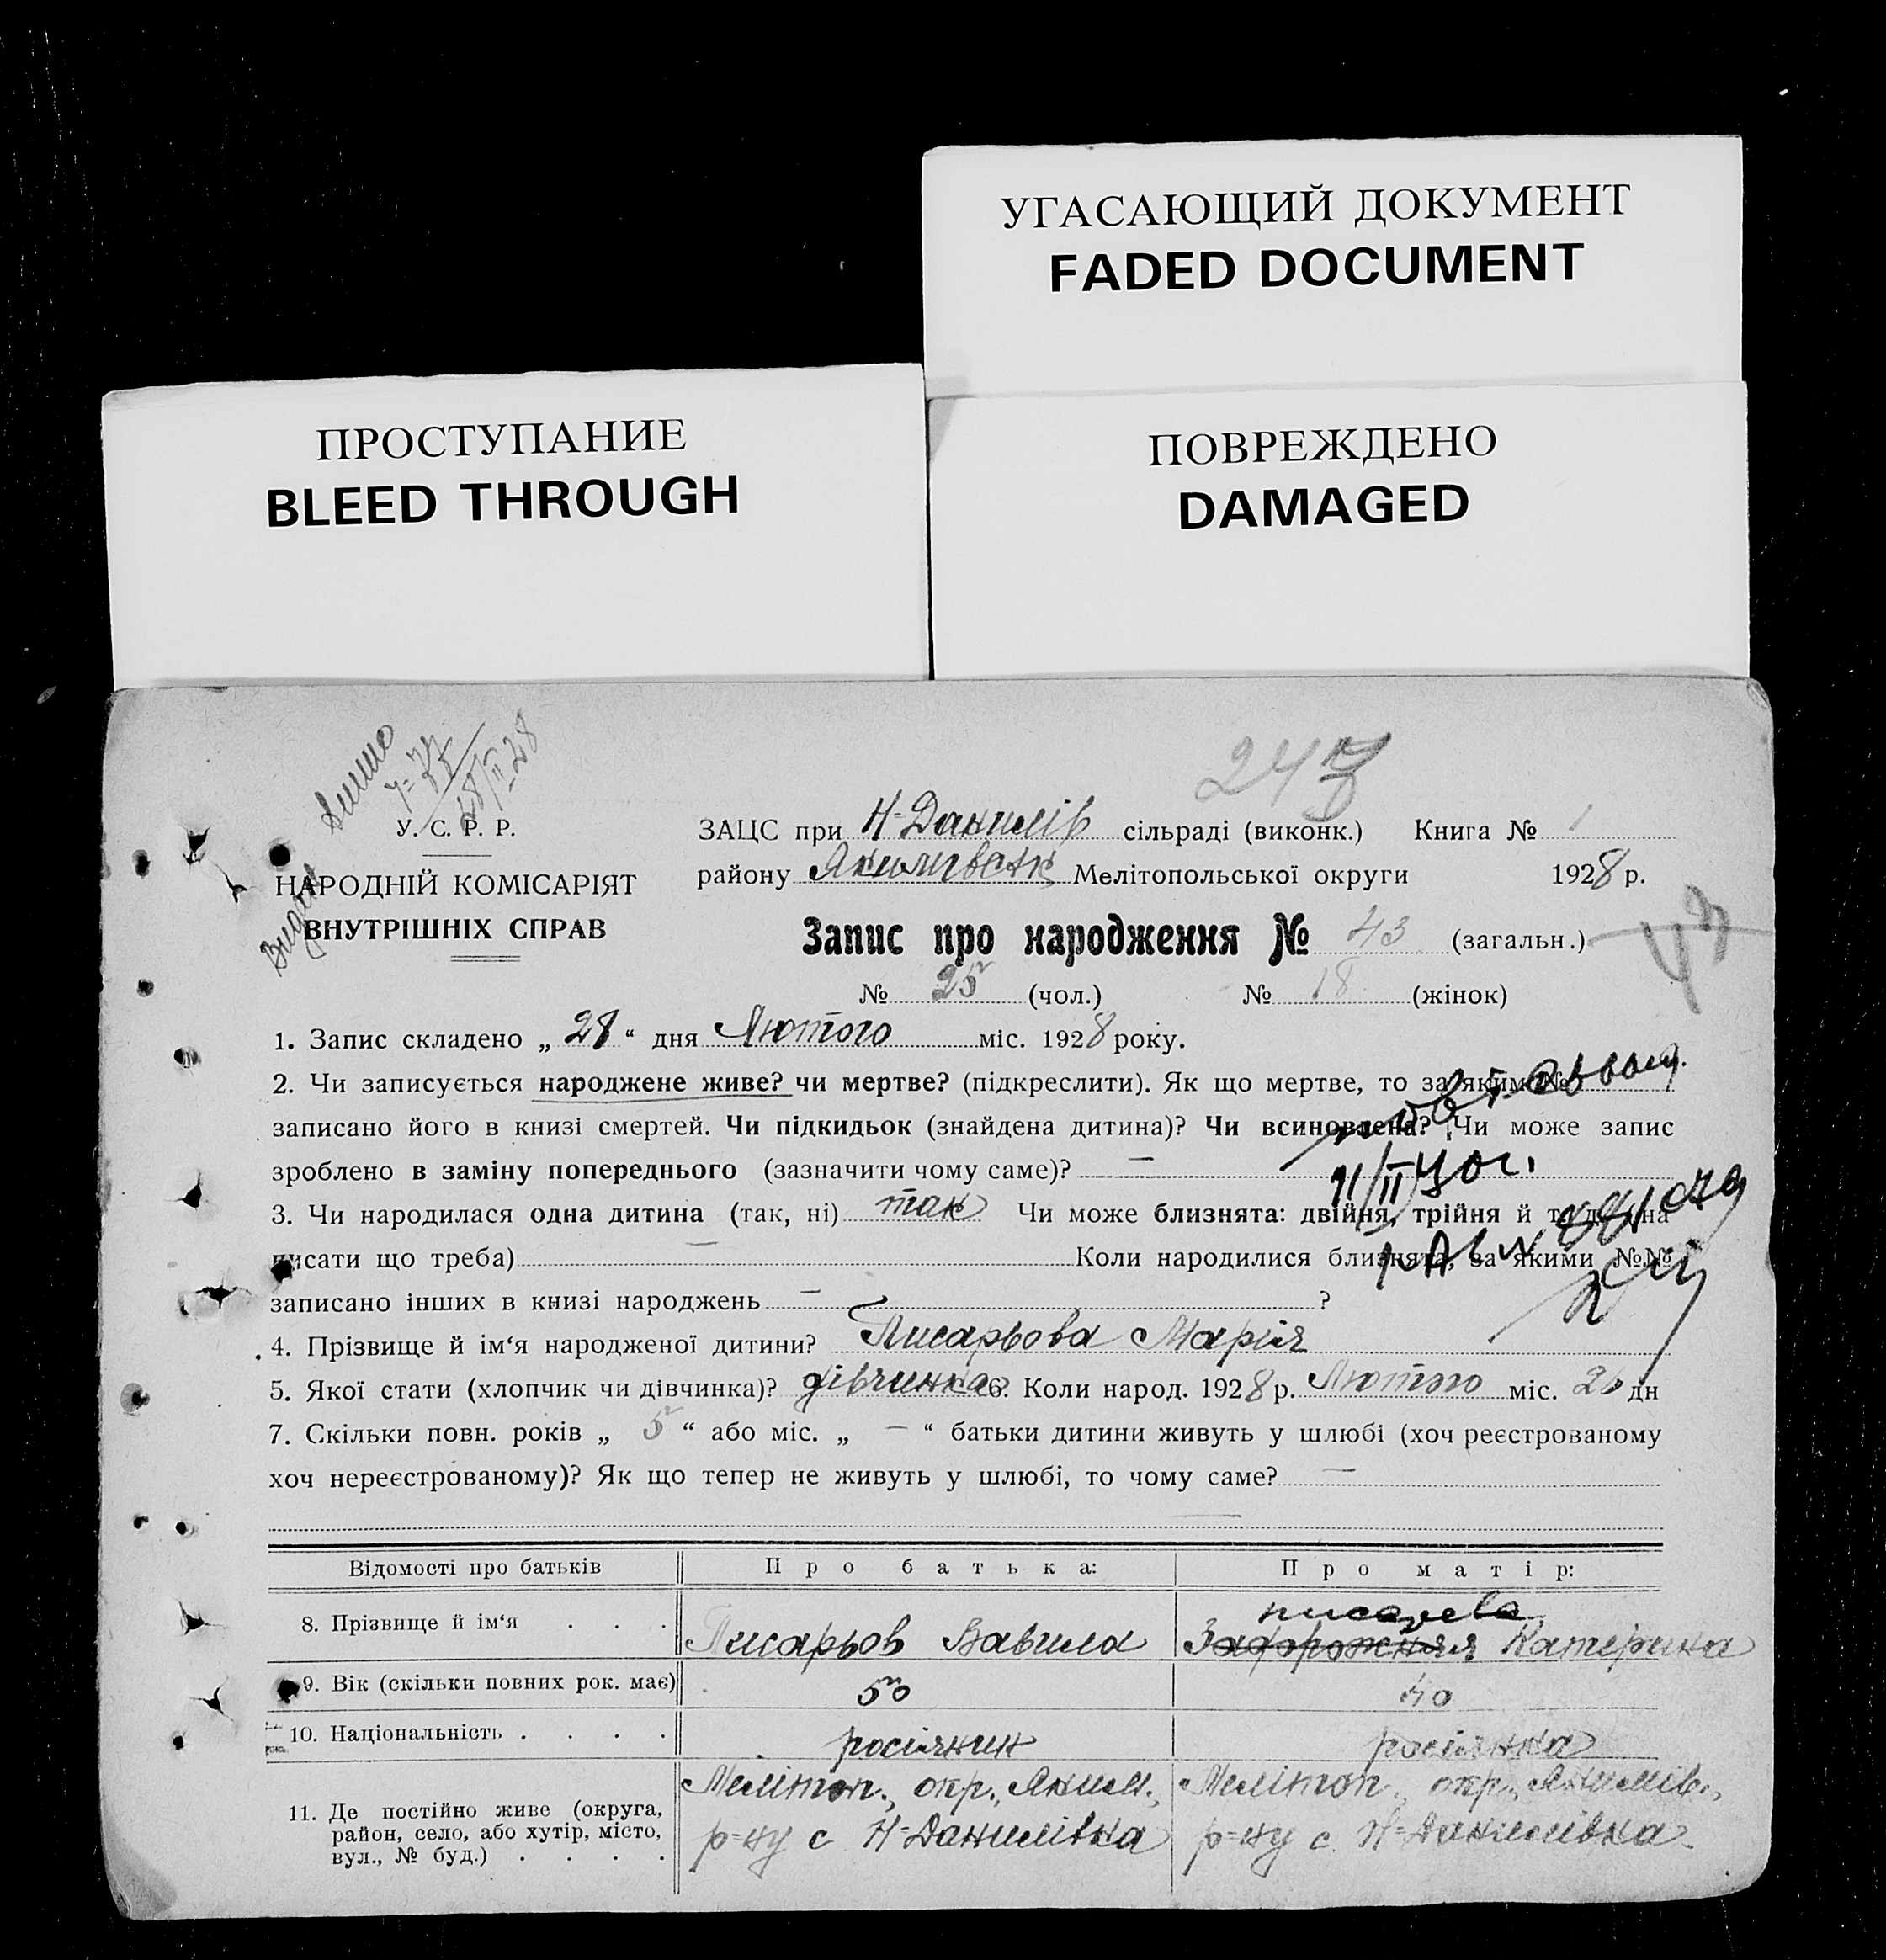 УГАСАЮЩИЙ ДОКУМЕНТ
FADED DOCUMENT
ПРОСТУПАНИЕ
BLEED THROUGH
ПОВРЕЖДЕНО
DAMAGED
247
28/II-28
У. С. Р. Р.
НАРОДНІЙ КОМІСАРІЯТ
ВНУТРІШНІХ СПРАВ
ЗАЦС при Н-Данилів сільраді (виконк.) Книга № 1
району Якимівськ Мелітопольської округи 1928 р.
Запис про народження № 43 (загальн.)
43
№ 25 (чол.) № 18 (жінок)
1. Запис складено „ 28 “ дня Лютого міс. 1928 року.
2. Чи записується народжене живе? чи мертве? (підкреслити). Як що мертве, то за яким №
записано його в книзі смертей. Чи підкидьок (знайдена дитина)? Чи всиновлена? Чи може запис
зроблено в заміну попереднього (зазначити чому саме)? —
11/II 40 г.
3. Чи народилася одна дитина (так, ні) так Чи може близнята: двійня, трійня й т. д. (на
писати що треба) — Коли народилися близнята, за якими №№
записано інших в книзі народжень — ?
4. Прізвище й ім‘я народженої дитини? Писарьова Марія
5. Якої стати (хлопчик чи дівчинка)? дівчинка 6. Коли народ. 1928 р. Лютого міс. 20 дн
7. Скільки повн. років „ 5 “ або міс. „ — “ батьки дитини живуть у шлюбі (хоч реєстрованому
хоч нереєстрованому)? Як що тепер не живуть у шлюбі, то чому саме? —
Відомості про батьків Про батька: Про матір:
писарева
8. Прізвище й ім‘я . . . Писарьов Вавила Катерина
9. Вік (скільки повних рок. має) 50 40
10. Національність . . . . росіянин росіянка
11. Де постійно живе (округа, район, село, або хутір, місто, вул., № буд.) . . . .
Мелітоп., окр., Яким., р-ну с Н-Данилівка
Мелітоп., окр., Якимів., р-ну с. Н-Данилівка